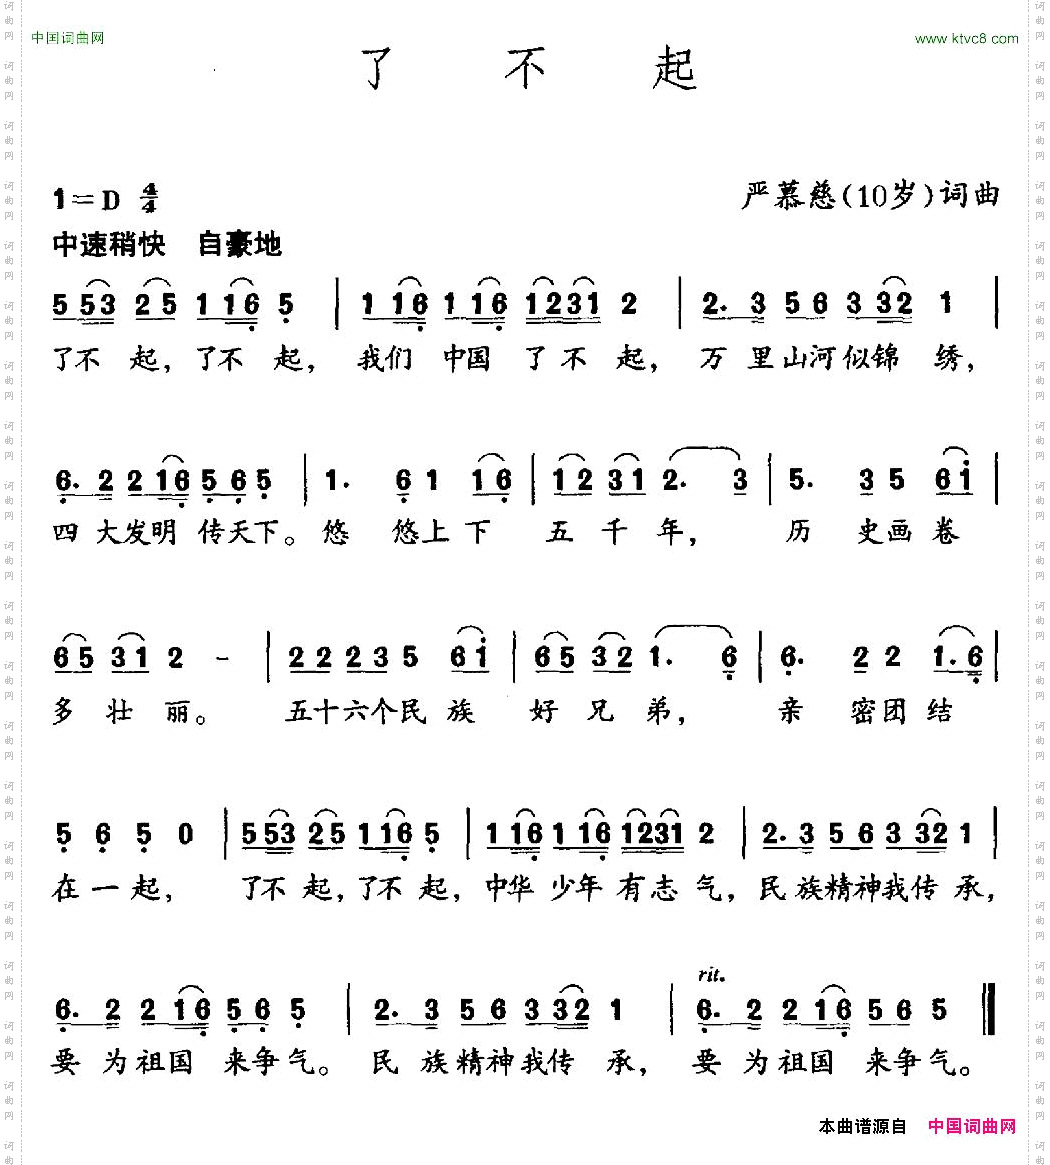 中国词曲网 www.ktvc8.com
了不起
1=D 4/4 严慕慈(10岁)词曲
中速稍快 自豪地
5 553 25 116 5 | 1 116 1 116 1231 2 | 2. 3 56 332 1 |
了不起，了不起，我们中国了不起，万里山河似锦绣，
6. 2 2 16 5 6 5 | 1. 6 1 16 | 12 31 2. 3 | 5. 3 5 6i |
四大发明传天下。悠悠上下五千年，历史画卷
65 31 2 - | 22 23 5 6i | 65 32 1. 6 | 6. 2 2 1.6 |
多壮丽。五十六个民族好兄弟，亲密团结
5 6 5 0 | 5 553 25 116 5 | 1 116 1 116 1231 2 | 2. 3 56 332 1 |
在一起，了不起，了不起，中华少年有志气，民族精神我传承，
rit.
6. 2 2 16 5 6 5 | 2. 3 56 332 1 | 6. 2 2 16 56 5 ‖
要为祖国来争气。民族精神我传承，要为祖国来争气。
本曲谱源自 中国词曲网